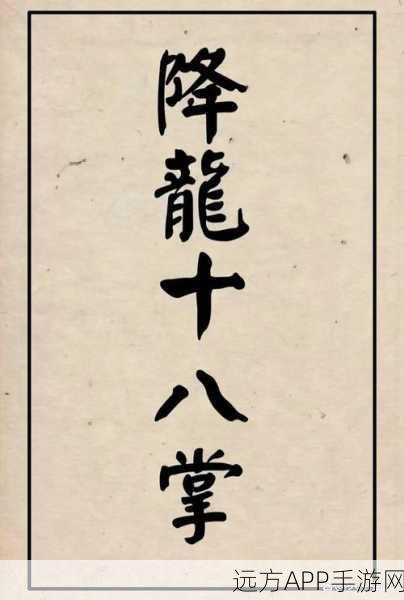 降龍十八掌
远方APP手游网